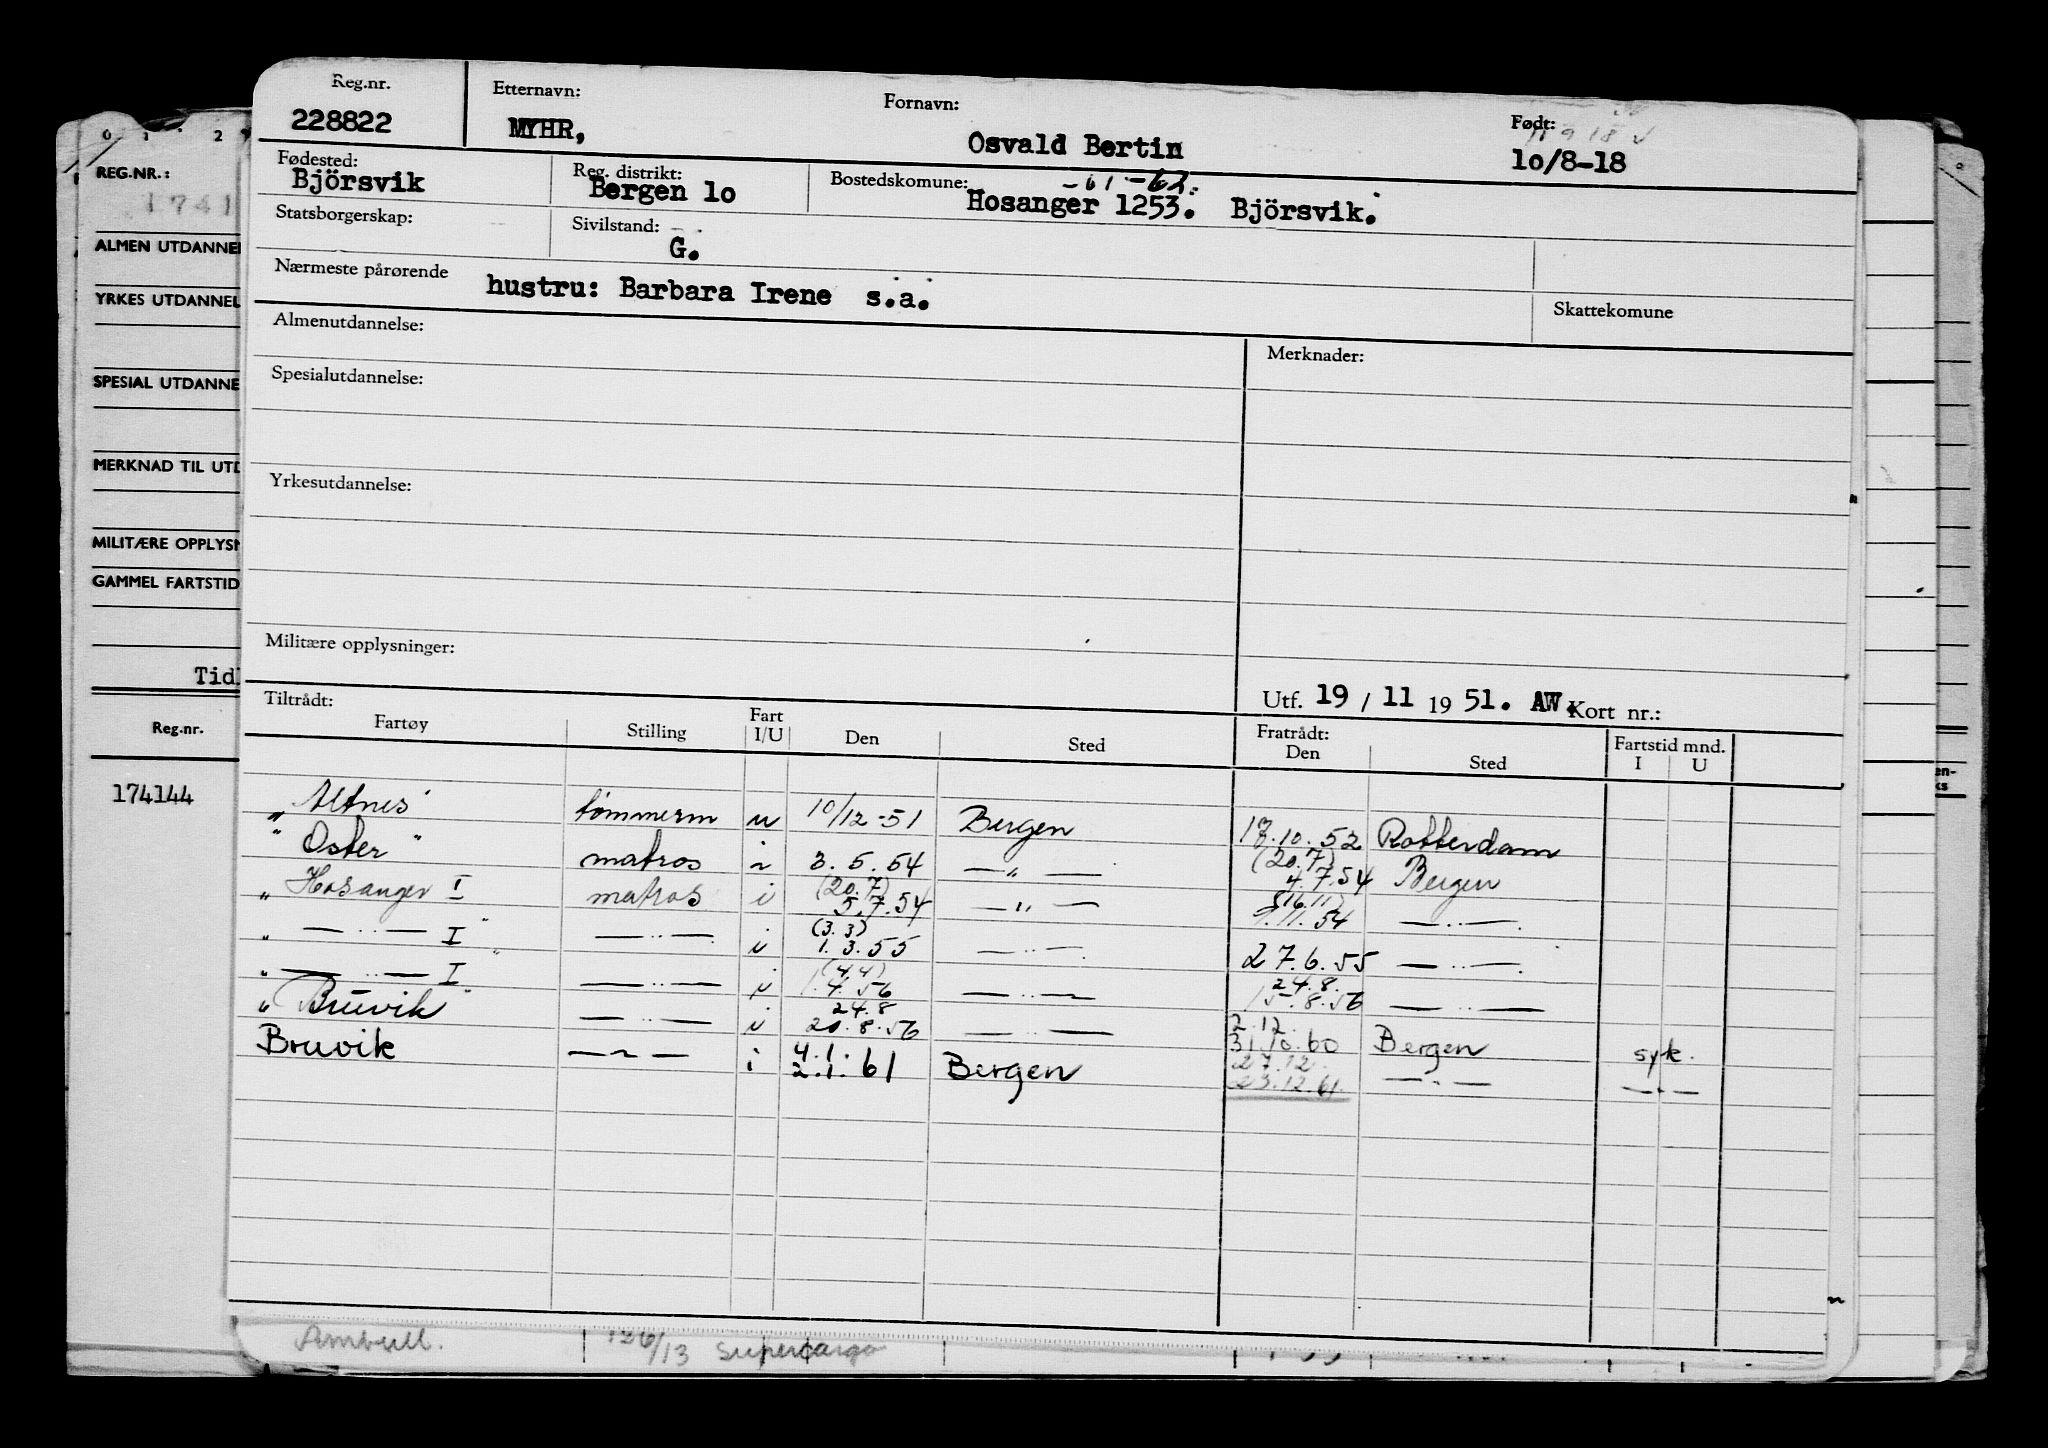 Reg.nr. Etternavn: Fornavn: Født:
228822 MYHR, Osvald Bertin 10/8-18
Fødested: Reg. distrikt: Bostedskomune: -61-62.
Björsvik Bergen 10 Hosanger 1253. Björsvik.
Statsborgerskap: Sivilstand:
G.
Nærmeste pårørende hustru: Barbara Irene s.a.
Skattekomune
Almenutdannelse: Merknader:
Spesialutdannelse:
Yrkesutdannelse:
Militære opplysninger:
Utf. 19 / 11 19 51. AW. Kort nr.:
Tiltrådt: Fratrådt:
Fartøy Stilling Fart I/U Den Sted Den Sted Fartstid mnd. I U
" Altnes " tömmerm u 10/12-51 Bergen 17.10.52 Rotterdam
" Oster " matros i 3.5.54 —"— (20.7) 4.7.54 Bergen
" Hosanger I " matros i (20.7) 5.7.54 —"— (16.11) 1.11.54 —"—
" —"— I " —"— i (3.3) 1.3.55 —"— 27.6.55 —"—
" —"— I " —"— i (4.4) 1.4.56 —"— 24.8. 15.8.56 —"—
" Bruvik " —"— i 24.8 20.8.56 —"— 2.12. 31.10.60 Bergen syk.
Bruvik —"— i 4.1. 2.1.61 Bergen 27.12. 23.12.61. —"— —"—
0 1 2
REG.NR.:
1741
ALMEN UTDANNEL
YRKES UTDANNEL
SPESIAL UTDANNE
MERKNAD TIL UTD
MILITÆRE OPPLYSN
GAMMEL FARTSTID
Tid
Reg.nr.
174144
Supercargo